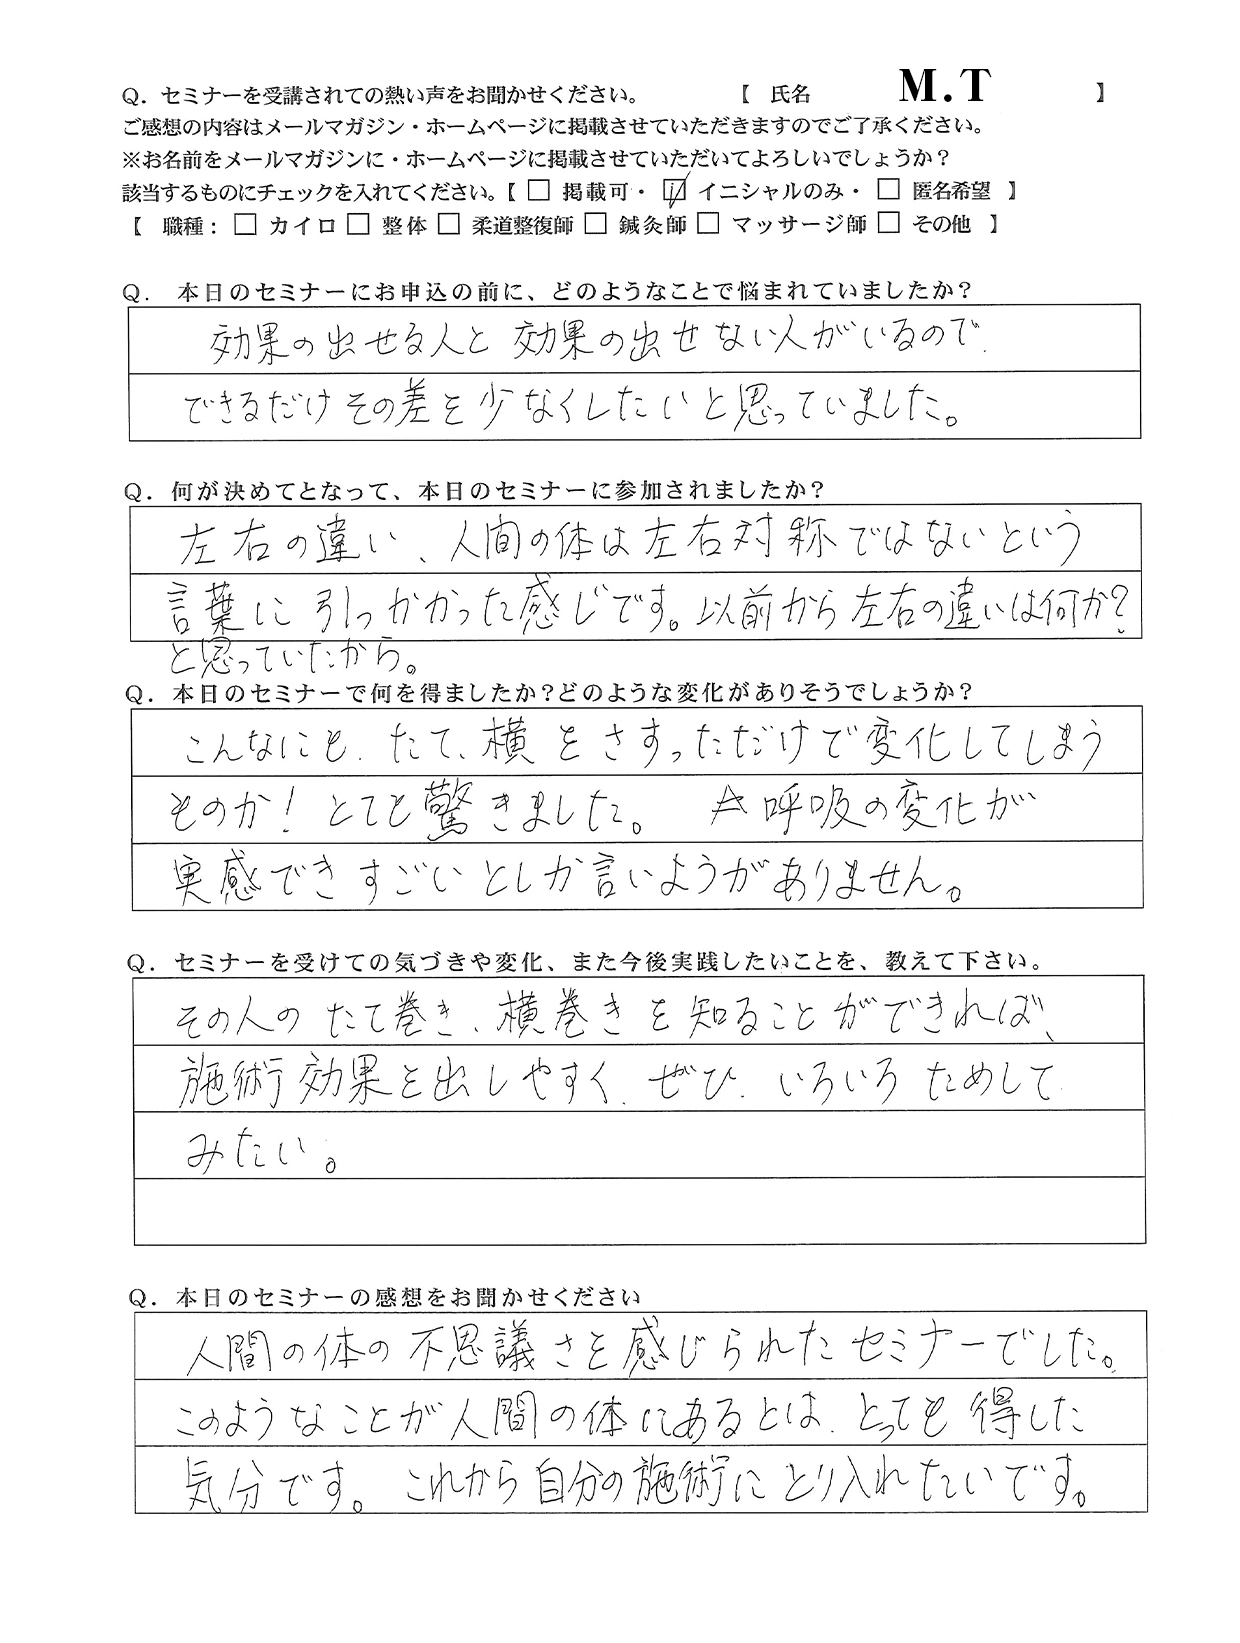 Q．セミナーを受講されての熱い声をお聞かせください。　【　氏名　M.T　】
ご感想の内容はメールマガジン・ホームページに掲載させていただきますのでご了承ください。
※お名前をメールマガジンに・ホームページに掲載させていただいてよろしいでしょうか？
該当するものにチェックを入れてください。【 □ 掲載可・ ☑ イニシャルのみ・ □ 匿名希望 】
【　職種：□ カイロ □ 整体 □ 柔道整復師 □ 鍼灸師 □ マッサージ師 □ その他　】
Q．本日のセミナーにお申込の前に、どのようなことで悩まれていましたか？
効果の出せる人と効果の出せない人がいるので、
できるだけその差を少なくしたいと思っていました。
Q．何が決めてとなって、本日のセミナーに参加されましたか？
左右の違い、人間の体は左右対称ではないという
言葉に引っかかった感じです。以前から左右の違いは何か？
と思っていたから。
Q．本日のセミナーで何を得ましたか？どのような変化がありそうでしょうか？
こんなにも、たて、横をさすっただけで変化してしまう
ものか！とても驚きました。　☆呼吸の変化が
実感できすごいとしか言いようがありません。
Q．セミナーを受けての気づきや変化、また今後実践したいことを、教えて下さい。
その人のたて巻き、横巻きを知ることができれば、
施術効果を出しやすく、ぜひ、いろいろためして
みたい。
Q．本日のセミナーの感想をお聞かせください
人間の体の不思議さを感じられたセミナーでした。
このようなことが人間の体にあるとは、とっても得した
気分です。これから自分の施術にとり入れたいです。